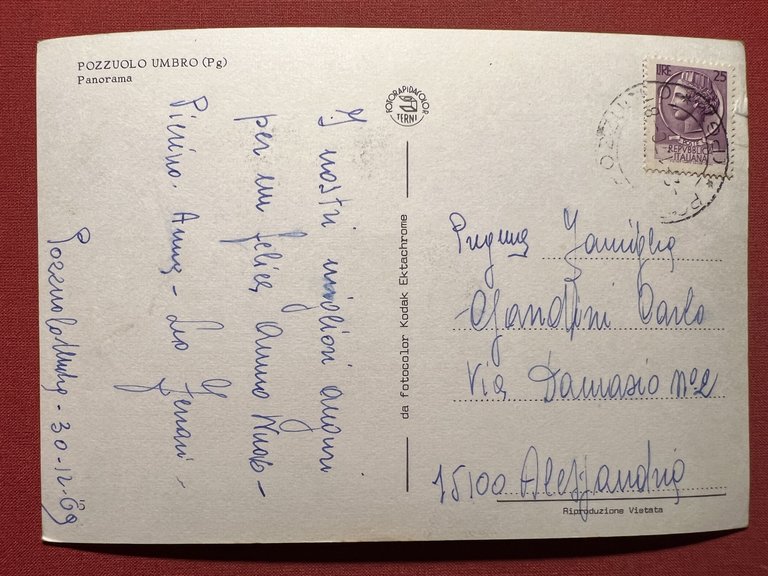 POZZUOLO UMBRO (Pg)
Panorama
I nostri migliori auguri
per un felice Anno Nuovo -
Pierino - Anna - Leo Ferrari -
Pozzuolo Umbro - 30-12-69
FOTORAPIDACOLOR
TERNI
da fotocolor Kodak Ektachrome
LIRE 25
POSTE
REPUBBLICA
ITALIANA
Famiglia
Gandini Carlo
Via Damasio nº 2
15100 Alessandria
Riproduzione Vietata